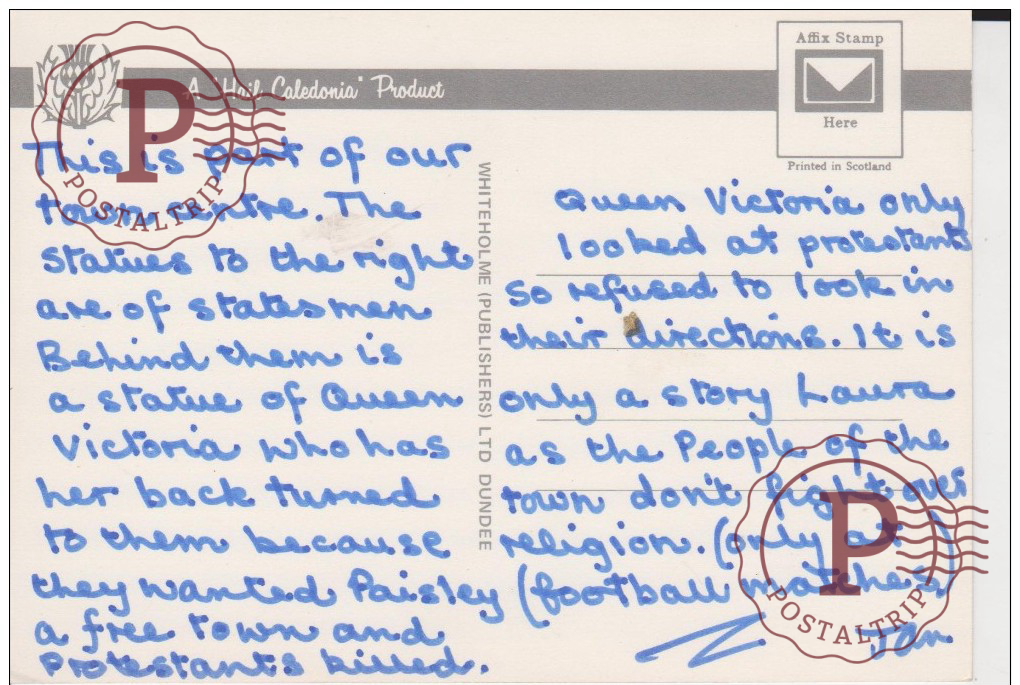 A "Hail Caledonia" Product
Affix Stamp
Here
Printed in Scotland
WHITEHOLME (PUBLISHERS) LTD DUNDEE
This is part of our
town centre. The
statues to the right
are of statesmen
Behind them is
a statue of Queen
Victoria who has
her back turned
to them because
they wanted Paisley
a free town and
Protestants killed.
Queen Victoria only
looked at protestants
so refused to look in
their directions. It is
only a story Laura
as the People of the
town don't fight over
religion. (only at
(football matches)
Jan
P
POSTALTRIP
P
POSTALTRIP